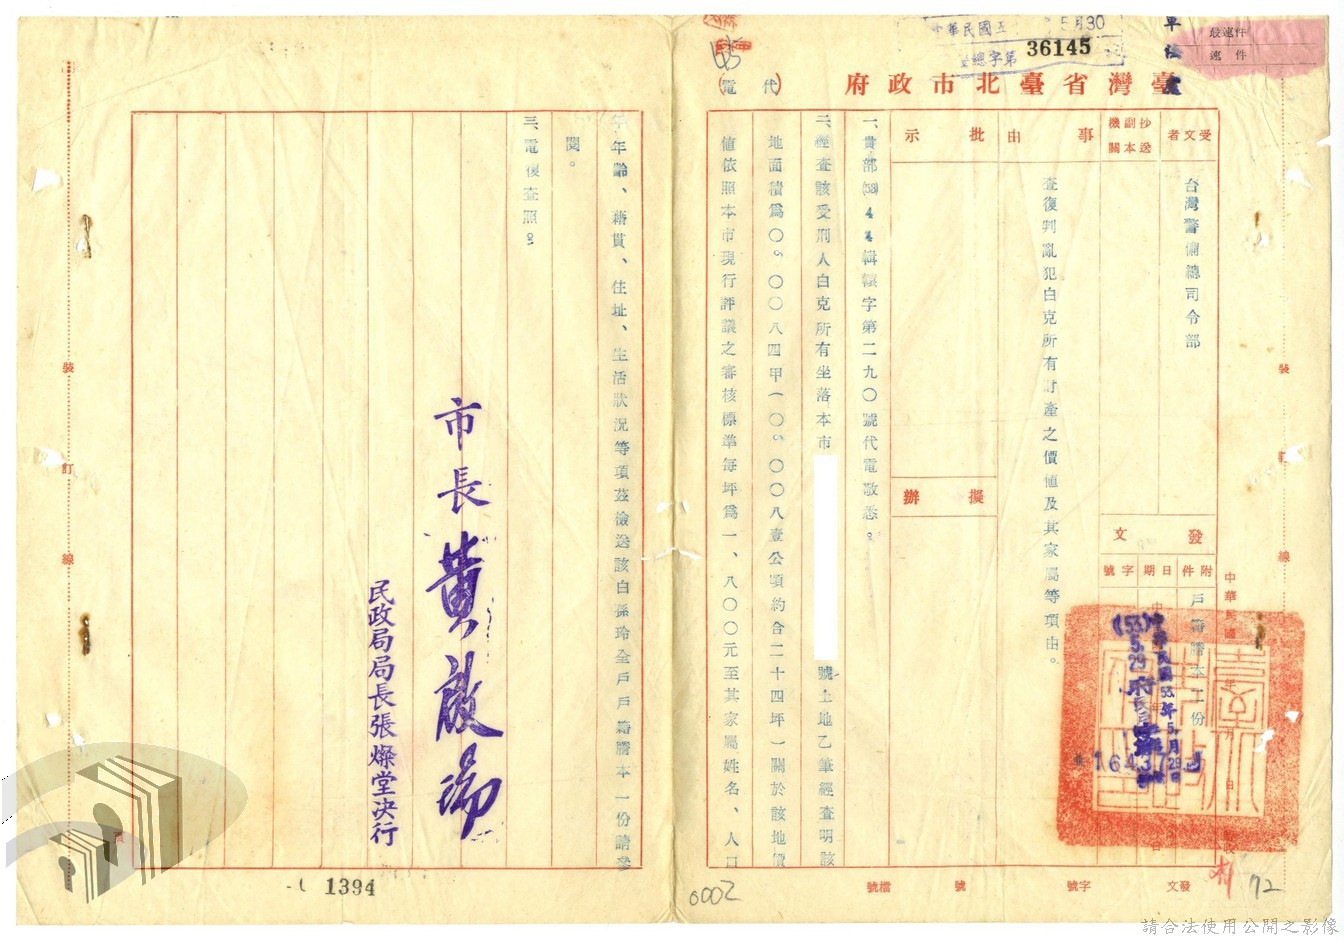 最速件
速件
中華民國五
5月30
總字第
36145
臺灣省臺北市政府
(代電)
受文者
台灣警備總司令部
抄送副本機關
發文
附件
戶籍謄本乙份
日期
字號
中華民國
中華民國53年5月29日
(53)
5.29
府
16437
事由
查復判亂犯白克所有財產之價值及其家屬等項由。
批示
擬辦
一、貴部(53)4
字第二九〇號代電敬悉。
二、經查該受刑人白克所有坐落本市
號土地乙筆經查明該
地面積為〇。〇〇八四甲(〇。〇〇八壹公頃約合二十四坪)關於該地價
值依照本市現行評議之審核標準每坪為一、八〇〇元至其家屬姓名、人口
年齡、籍貫、住址、生活狀況等項茲檢送該白孫玲全戶戶籍謄本一份請參
閱。
三、電復查照。
市長黃啟瑞
民政局局長張燦堂決行
裝
訂
線
裝
訂
線
發文
字號
號
檔號
72
0002
1394
請合法使用公開之影像